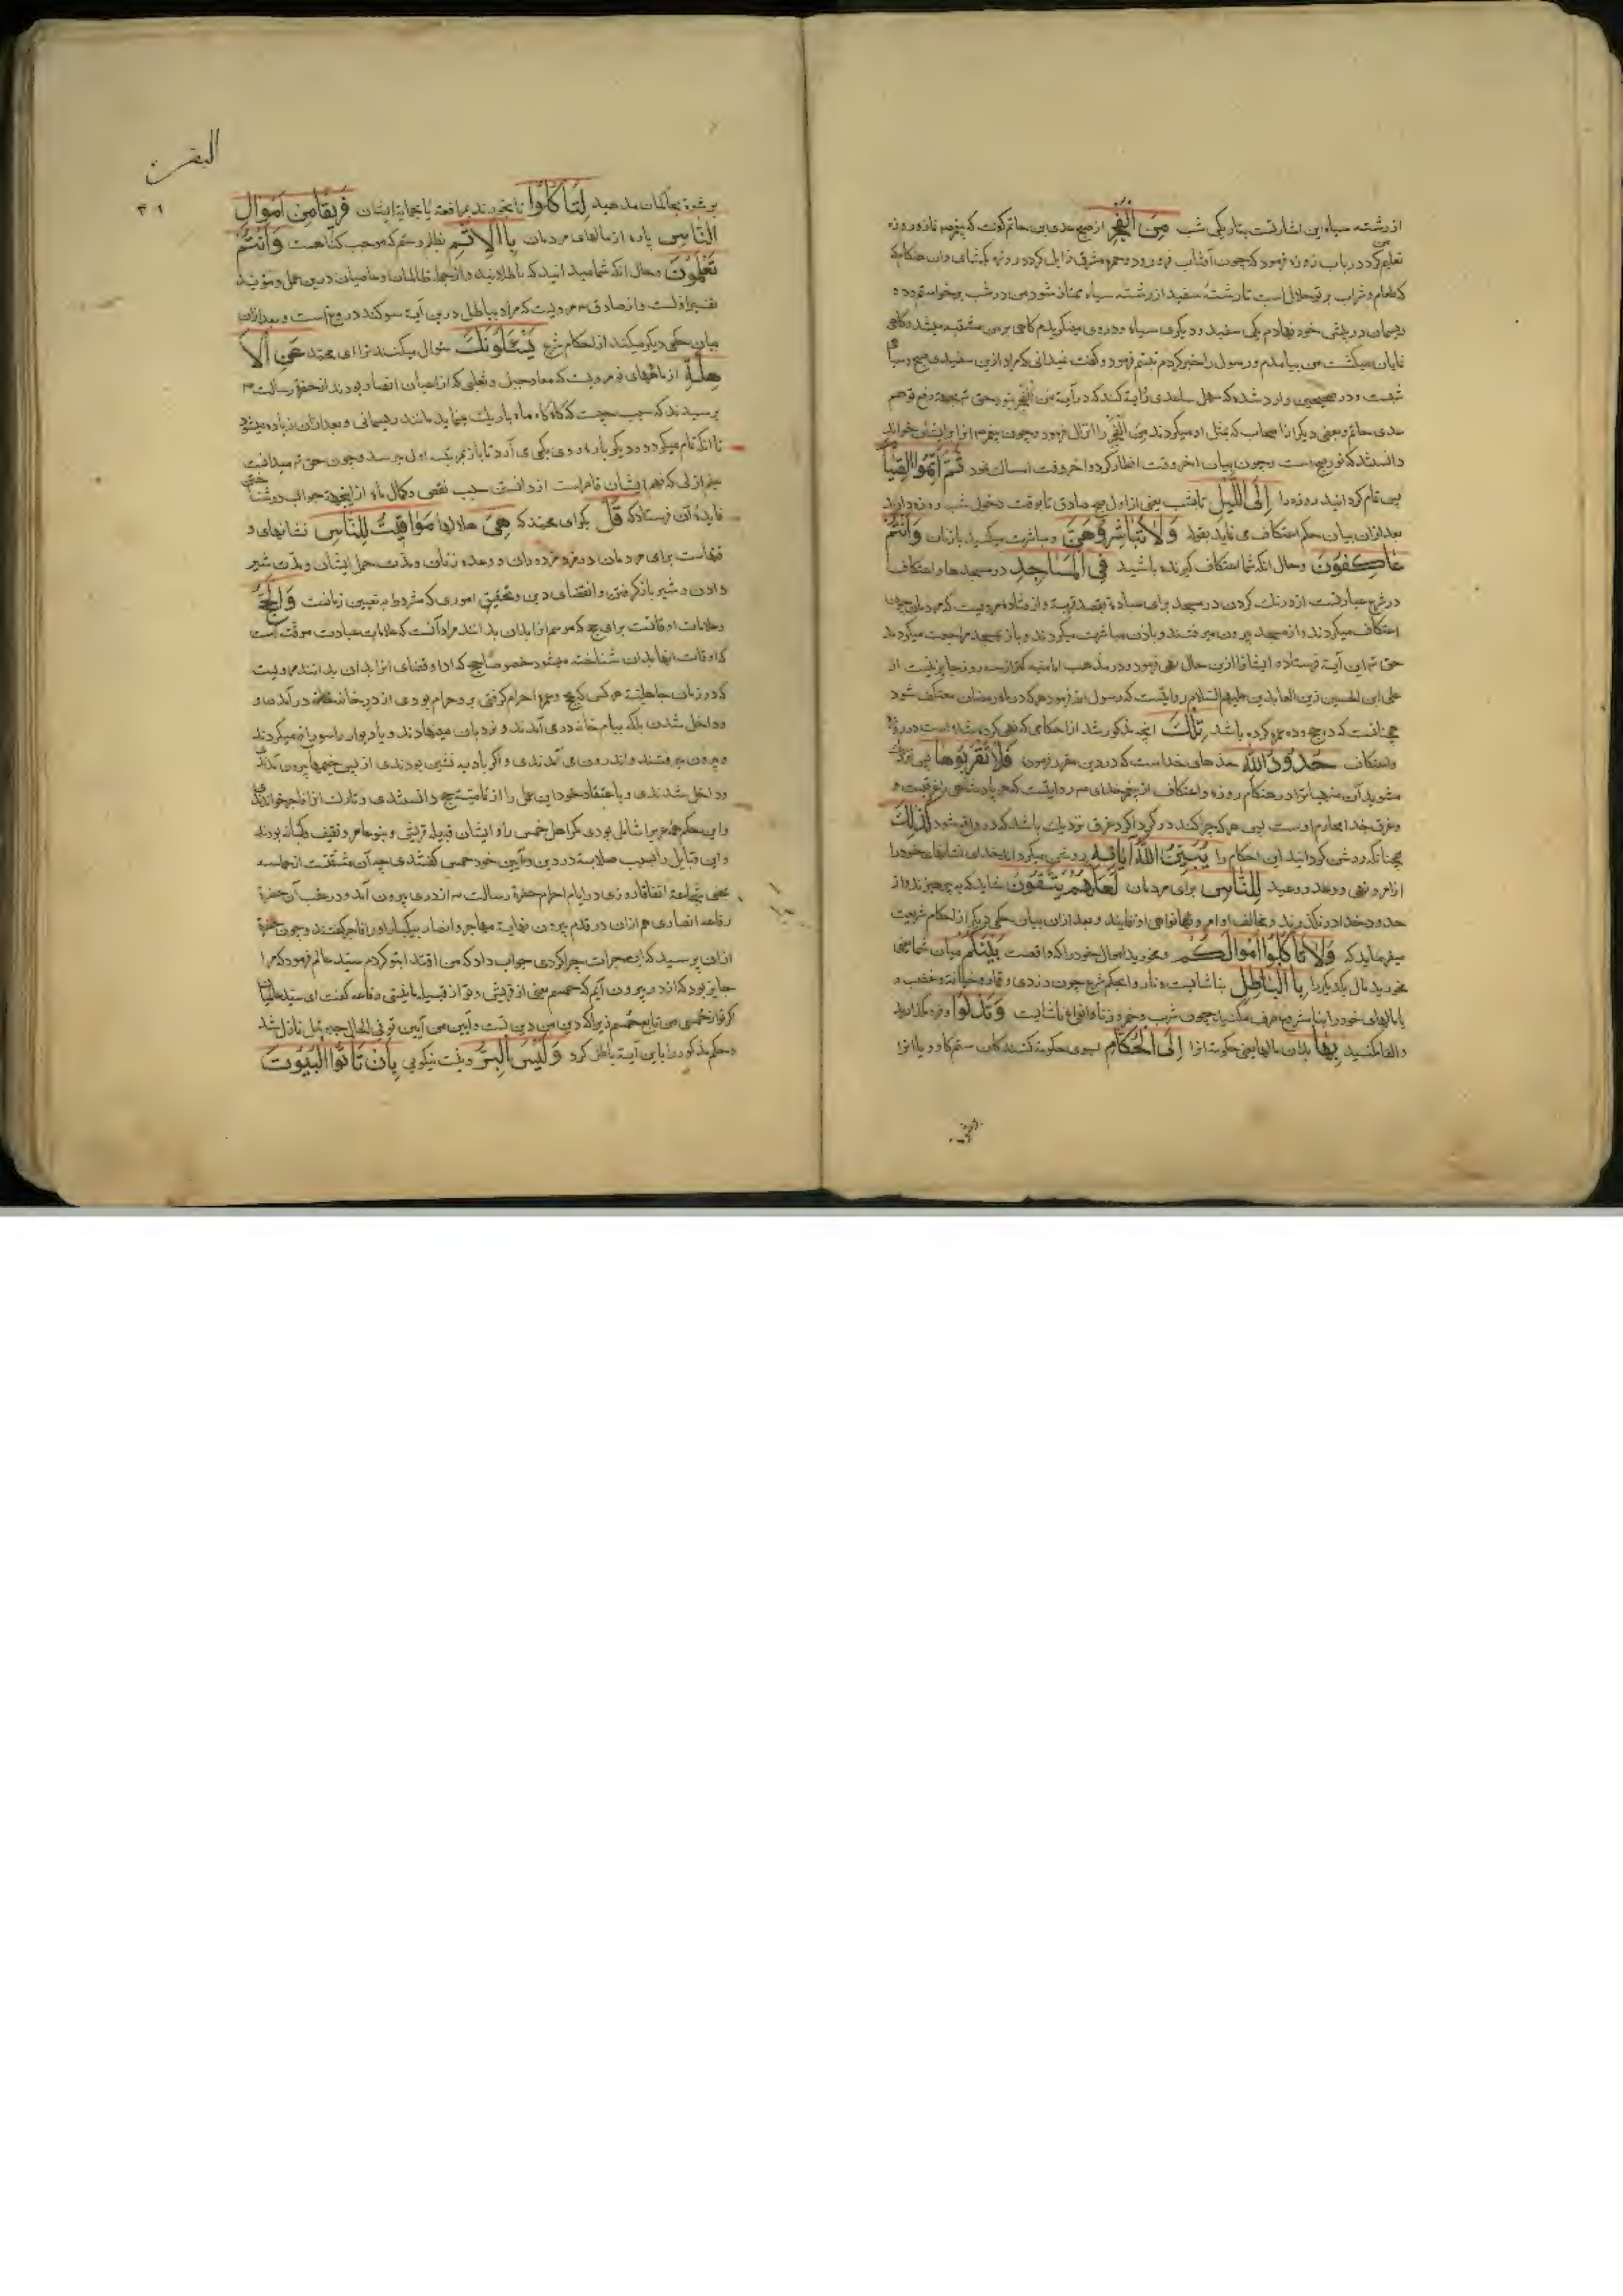 از رشته سیاه این اشارتست بتاریکی شب مِنَ الْفَجْرِ از صبح عدی بن حاتم گوید که پیغمبر نماز و روزه
تعلیم کرد در باب روزه فرمود که چون آفتاب فرو رود و حمره مشرق زایل گردد روزه بگشای و آن هنگام که
طعام و شراب بر تو حلال است تا رشتهٔ سفید از رشته سیاه ممتاز شود من در شب برخواستم و ده
ریسمان در پیش خود نهادم یکی سفید و دیگری سیاه و در وی مینگریدم گاهی بر من مشتبه میشد و گاهی
نمایان میگشت من بیامدم و رسول را خبر کردم تبسم فرمود و گفت نمیدانی که مراد ازین سفیدی صبح و سیاهی
شبست و در صحیحین وارد شده که سهل ساعدی روایة کند که در آیة من الفجر نبود حق تع بجهة دفع توهم
عدی حاتم و بعضی دیگر از اصحاب که مثل او میکردند مِنَ الْفَجْرِ را انزال فرمود و چون پیغمبر انرا برایشان خواند
دانستند که نور صبح است و چون بیان اخر وقت افطار کرد و اخر وقت امساک نمود ثُمَّ أَتِمُّوا الصِّيَا
پس تمام گردانید روزه را إِلَى اللَّيْلِ تا شب یعنی از اول صبح صادق تا وقت دخول شب روزه دارید
بعد از آن بیان حکم اعتکاف می نماید بقوله وَلَا تُبَاشِرُوهُنَّ و مباشرت میکنید بازنان وَأَنْتُمْ
عَاكِفُونَ و حال انکه شما اعتکاف گیرنده باشید فِي الْمَسَاجِدِ در مسجدها و اعتکاف
در شرع عبارتست از درنک کردن در مسجد برای عبادة بقصد قربة و از قتاده مرویست که مردمان چون
اعتکاف میکردند و از مسجد بیرون میرفتند و بازن مباشرت میکردند و باز بمسجد مراجعت میکردند
حق تع این آیة فرستاده ایشانرا ازین حال نهی فرمود و در مذهب امامیه کمتر از سه روز جایز نیست از
علی ابن الحسین زین العابدین علیهم السلام روایتست که رسول الله فرمود هر که در ماه رمضان معتکف شود
همچنانست که دو حج و دو عمره کرده باشد تِلْكَ انچه مذکور شد از احکامی که نهی کرده شده است در روزه
و اعتکاف حُدُودُ اللَّهِ حدهای خداست که در دین مقرر فرموده فَلَا تَقْرَبُوهَا پس نزدیک
مشوید آن منهیاترا در هنگام روزه و اعتکاف از پیغمبر خدای ص روایتست که هر پادشاهی را غرقیست و
و غرق خدا محارم اوست پس هر که چرا کند در گرداگرد غرق نزدیک باشد که در و واقع شود كَذَلِكَ
همچنانکه روشن گردانید این احکام را يُبَيِّنُ اللَّهُ آيَاتِهِ روشن میگرداند خدای نشانهای خود را
از امر و نهی و وعد و وعید لِلنَّاسِ برای مردمان لَعَلَّهُمْ يَتَّقُونَ شاید که بپرهیزند و از
حدود خدا در نگذرند و مخالف اوامر و نهی و نواهی او ننمایند و بعد از آن بیان حکمی دیگر از احکام شریعت
میفرماید که وَلَا تَأْكُلُوا أَمْوَالَكُمْ و مخورید اموال خود را که واقعست بَيْنَكُمْ میان شما یعنی
مخورید مال یکدیگر را بِالْبَاطِلِ بناشایست و ناروا بحکم شرع چون دزدی و قمار و خیانت و غصب و
یا مالهای خود را بنا مشروع صرف مکنید چون شرب و خمر و زنا و انواع ناشایست وَتُدْلُوا و فرو مگذارید
و القا مکنید بِهَا بدان مالها یعنی حکومة انرا إِلَى الْحُكَّامِ بسوی حکومة کنندکان ستمکار و یا انرا
البقره
٣٩
برشوة بحاکمان مدهید لِتَأْكُلُوا تا بخورند بمرافعة یا بحمایة ایشان فَرِيقًا مِنْ أَمْوَالِ
النَّاسِ پاره از مالهای مردمان بِالْإِثْمِ بظلم و ستم که موجب کناهست وَأَنْتُمْ
تَعْلَمُونَ و حال انکه شما میدانید که باطلانید و از جمله ظالمان و عاصیان درین عمل و مؤید
تفسیر اولست و از صادق ع مرویست که مراد بباطل درین آیة سوکند دروغ است و بعد از آن
بیان حکمی دیگر میکند از احکام شرع يَسْئَلُونَكَ سؤال میکنند ترا ای محمد عَنِ الْأَ
هِلَّةِ از ماههای نو مرویست که معاذ جبل و ثعلبی که از اعیان انصار بودند از حضرة رسالت ص
پرسیدند که سبب چیست که گاه گاه ماه باریک مینماید مانند ریسمانی و بعد از آن زیاده میشود
تا انکه تمام میگردد و دیگر باره روی بکمی می آرد تا باز بمرتبه اول میرسد و چون حق تع میدانست
بعلم ازلی که فهم ایشان قاصر است از دانستن سبب نقص و کمال ماه از اینجهة جواب
فایدهٔ آن فرستاد که قُلْ بگو ای محمد که هِيَ هلالها مَوَاقِيتُ لِلنَّاسِ نشانهای و
وقتهاست برای مردمان در مزد مزدوران و وعده زنان و مدت حمل ایشان و مدت شیر
دادن و شیر بازگرفتن و انقضای دین و تحقیق اموری که مشروط بتعیین زمانست وَالْحَجِّ
و علامات اوقاتست برای حج که موسم انرا بدان بدانند مراد آنست که علامات عبادت موقت است
که اوقات انها بدان شناخته میشود خصوصا حج که ادا و قضای انرا بدان بدانند مرویست
که در زمان جاهلیة هر کس که بحج و عمره احرام گرفتی برو حرام بودی از در خانه خانه در آمدن و
و داخل شدن بلکه ببام خانه در می آمدند و نردبان مینهادند و یا دیوار را سوراخ میکردند
و بیرون میرفتند و اندرون می آمدندی و اگر بادیه نشین بودندی از پس خیمها بیرون آمدندی
و داخل شدندی و باعتقاد خود این عمل را از تمامیت حج دانستندی و تارک انرا فاجر خواندندی
و این حکم همه را شامل بودی مگر اهل حمس را و ایشان قبیله قریش و بنو عامر و ثقیف و کنانه بودند
و این قبایل را بسبب صلابة در دین و آیین خود حمس گفتندی چه آن مشتقست از حماسه
بمعنی شجاعة اتفاقا روزی در ایام احرام حضرة رسالت ص از دری بیرون آمد و در عقب آن حضرة
رفاعه انصاری هم ازان در قدم بیرون نهاد مهاجر و انصار بیکبار او را فاجر گفتند و چون حضرة
ازان پرسید که این جرات چرا کردی جواب داد که من اقتدا بتو کردم سید عالم فرمود که مرا
جایز بود که ازین در بیرون آیم که حمسم یعنی از قریش و تو از قبیله ما نیستی رفاعه گفت ای سید
اگر تو از حمسی من تابع حمسم زیرا که دین من دین تست و آیین من آیین تو فی الحال جبرئیل نازل شد
و حکم مذکور را باین آیة باطل کرد وَلَيْسَ الْبِرُّ و نیست نیکویی بِأَنْ تَأْتُوا الْبُيُوتَ